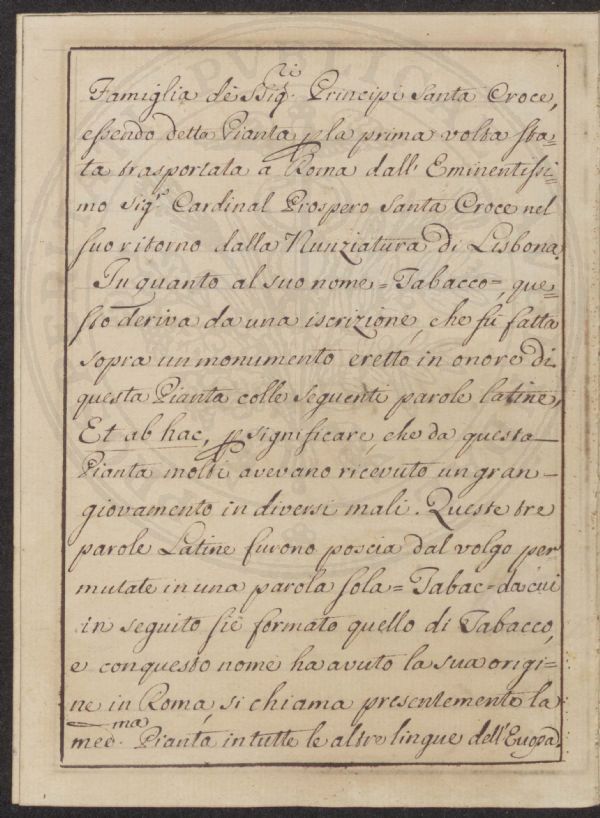 Famiglia de SSig.ri Principi Santa Croce,
essendo detta Pianta p la prima volta sta=
ta trasportata a Roma dall' Eminentissi=
mo Sig.r Cardinal Prospero Santa Croce nel
suo ritorno dalla Nunziatura di Lisbona
In quanto al suo nome = Tabacco =, que=
sto deriva da una iscrizione, che fù fatta
sopra un monumento eretto in onore di
questa Pianta colle seguenti parole latine,
Et ab hac, p significare, che da questa
Pianta molti avevano ricevuto un gran
giovamento in diversi mali. Queste tre
parole Latine furono poscia dal volgo per
mutate in una parola sola = Tabac = da cui
in seguito siè formato quello di Tabacco,
e con questo nome ha avuto la sua origi=
ne in Roma, si chiama presentemente la
med.ma Pianta in tutte le altre lingue dell'